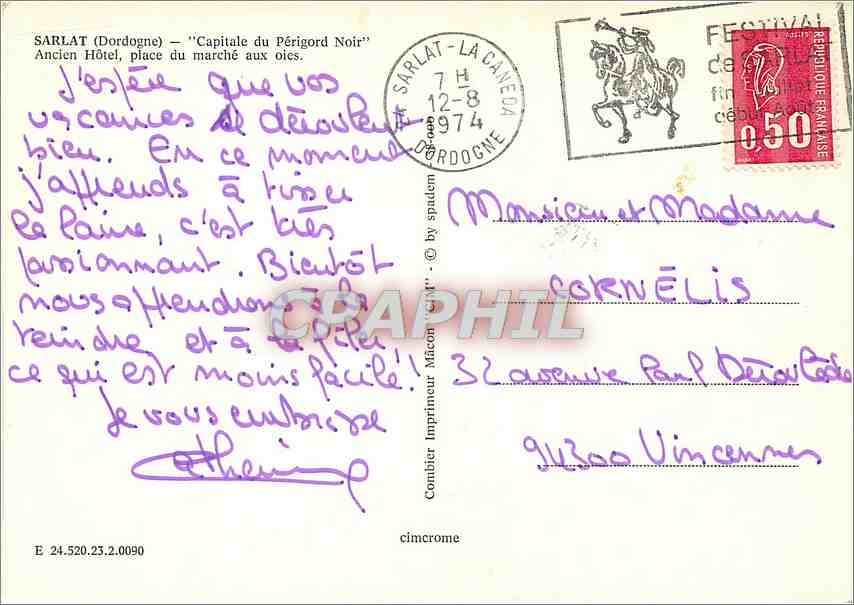 SARLAT (Dordogne) — "Capitale du Périgord Noir"
Ancien Hôtel, place du marché aux oies.
J'espère que vos
vacances se déroulent
bien. En ce moment
j'apprends à tisser
la laine, c'est très
passionnant. Bientôt
nous apprendrons à la
teindre et à la filer
ce qui est moins facile!
Je vous embrasse
Catherine
E 24.520.23.2.0090
cimcrome
Combier Imprimeur Mâcon "CIM" - © by spadem
24 SARLAT-LA CANEDA
7 H
12-8
1974
DORDOGNE
FESTIVAL
de SARLAT
fin Juillet
début Août
POSTES
REPUBLIQUE FRANÇAISE
0,50
Monsieur et Madame
CORNÉLIS
32 avenue Paul Déroulède
94300 Vincennes
CPAPHIL